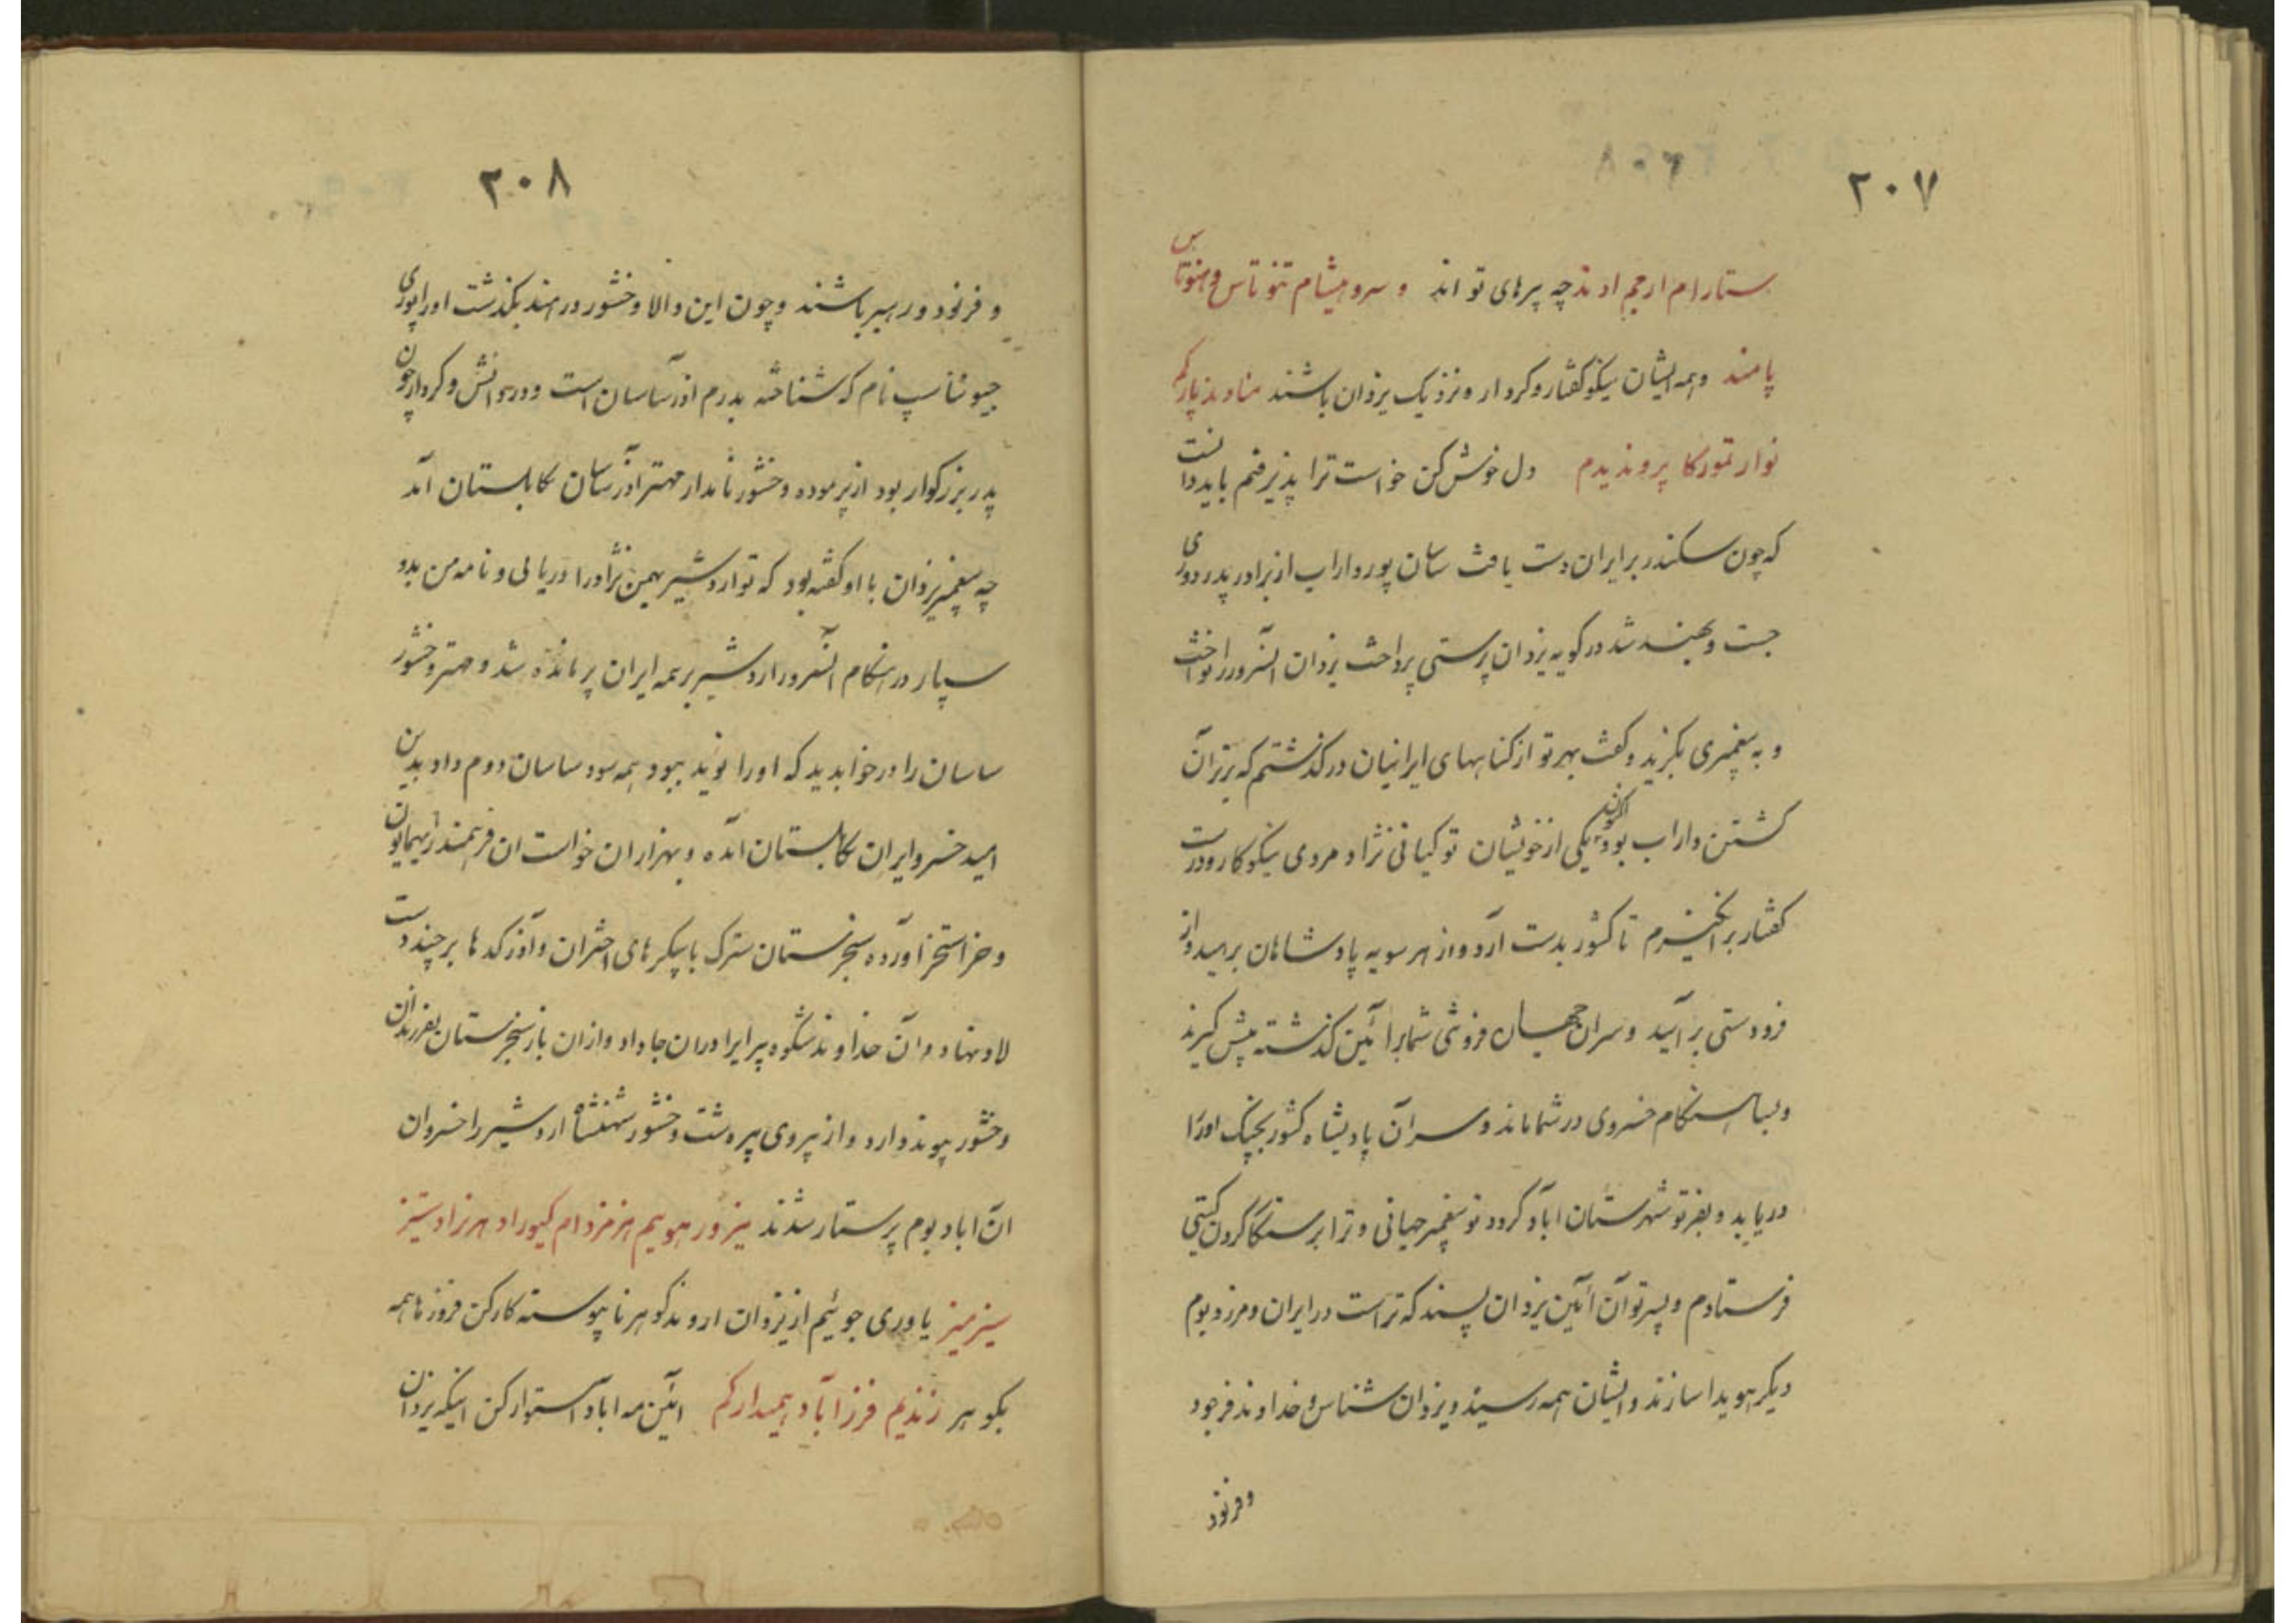 ٢٠٧
ستارام ارجم اوند چه پرهای تو اند و سروهیشام تنوتاس وهنوتاس
پامند وهمه ایشان نیکو کفتار و کردار ونزدیک یزدان باشند مناوند پارکم
نوار تمورکا پروندیدم دل خوش کن خواست ترا پذیرفتم باید دانست
که چون سکندر بر ایران دست یافت ساسان پور داراب از برادر پدر دوری
جست و بهند شد در کویه یزدان پرستی پرداخت یزدان انسرور را نواخت
و به پیغمبری بکزید و کفت بهر تو از کناههای ایرانیان درکذشتم که برتر آن
کشتن داراب بود اکنون یکی از خویشان تو کیانی نژاد مردی نیکو کار و درست
کفتار بر انکیزم تا کشور بدست آرد و از هر سویه پادشاهان برهید و از
فرودستی بر آیید و سران جهان فروشی شما را آئین کذشته پیش کیرند
و بسا هنکام خسروی در شما ماند و سران پادشاه کشور بچنک اورا
دریابد و بفر تو شهرستان اباد کردد تو پیغمبر جهانی و ترا برستکار کردن کیتی
فرستادم و پسر تو آن آئین یزدان پسند که تراست در ایران و مرز و بوم
دیکر هویدا سازند و ایشان همه رسیند و یزدان شناس و خداوند فرجود
وفرنود
٢٠٨
و فرنود و رهبر باشند و چون این والا وخشور در هند بکذشت اورا پوری
جیونتاسپ نام که شناخته بدرم اذر ساسان است و در دانش و کردار چون
پدر بزرکوار بود از پرموده وخشور نامدار مهتر آذر ساسان بکابلستان آمد
چه پیغمبر یزدان با او کفته بود که تو اردشیر بهمن نژاد را دریابی و نامه من بدو
سپار در هنکام انسرور اردشیر بر همه ایران پرمانده شد و مهتر وخشور
ساسان را در خواب دید که اورا نوید بهبود همه سود ساسان دوم داد بدین
امید خسرو ایران بکابلستان آمده و بهزاران خواست ان فرهمند را بهمایون
وخر استخر آورده سنجرستان سترک با پیکرهای اختران و آذرکدها بر چند دست
لاد نهاد و آن خداوند شکوه پیرا برادران جا داد و از ان باز سنجرستان بفرزندان
وخشور پیوند دارد و از پیروی پیره شت وخشور شهنشاه اردشیر را خسروان
ان اباد بوم پرستار شدند یزور هویم هرمزدام کیوراد هرزاد ستیز
سیز میز یاوری جوئیم از یزدان اروند کوهر ناپیوسته کار کن فروز ماهمه
بکوهر زندیم فرز آباد همیدارکم ائین مه اباد استوار کن اینکه یزدان